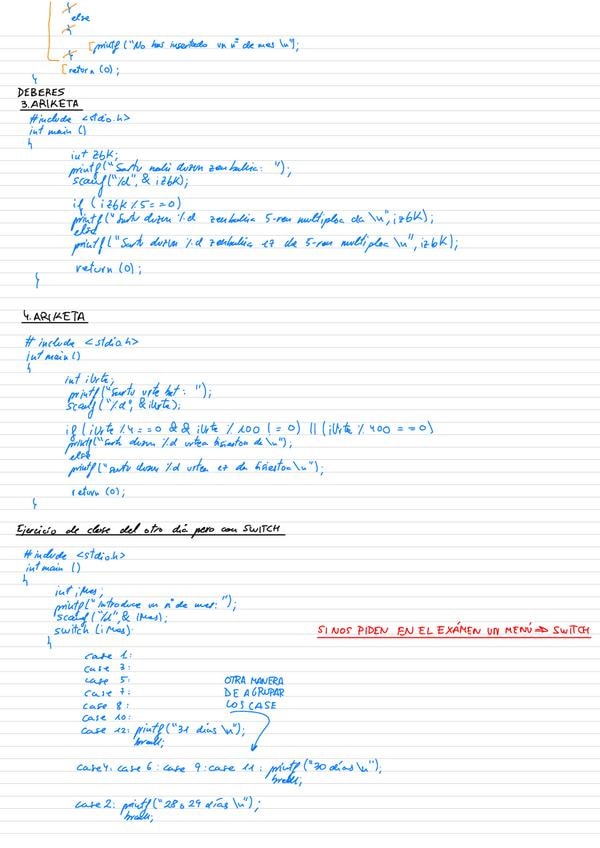 }
else
{
printf("No has insertado un nº de mes \n");
}
return (0);
}
DEBERES
3. ARIKETA
#include <stdio.h>
int main ()
{
int izbk;
printf("Sartu nahi duzun zenbakia: ");
scanf("%d", & izbk);
if (izbk % 5 == 0)
printf("Sartu duzun %d zenbakia 5-ren multiploa da \n", izbk);
else
printf("Sartu duzun %d zenbakia ez da 5-ren multiploa \n", izbk);
return (0);
}
4. ARIKETA
#include <stdio.h>
int main ()
{
int iUrte;
printf("Sartu urte bat: ");
scanf ("%d", & iUrte);
if (iUrte % 4 == 0 && iUrte % 100 != 0) || (iUrte % 400 == 0)
printf("Sartu duzun %d urtea bisiestoa da \n");
else
printf("Sartu duzun %d urtea ez da bisiestoa \n");
return (0);
}
Ejercicio de clase del otro día pero con SWITCH
#include <stdio.h>
int main ()
{
int iMes;
printf("Introduce un nº de mes: ");
scanf("%d", & iMes);
switch (iMes)
SI NOS PIDEN EN EL EXÁMEN UN MENÚ ⇒ SWITCH
{
case 1:
case 3:
case 5:
case 7:
case 8:
case 10:
case 12: printf("31 días \n");
break;
OTRA MANERA
DE AGRUPAR
LOS CASE
case 4: case 6: case 9: case 11: printf("30 días \n");
break;
case 2: printf("28 o 29 días \n");
break;